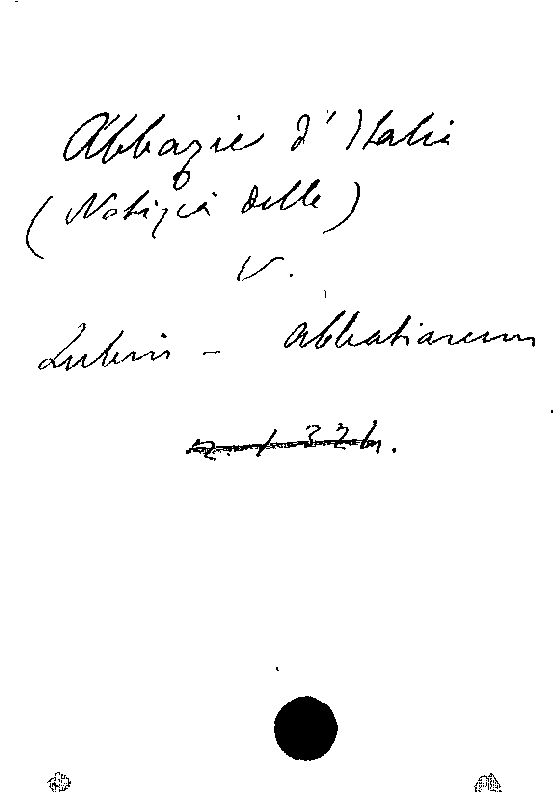 Abbazie d'Italia
(Notizia delle)
V.
Lubin - Abbatiarum